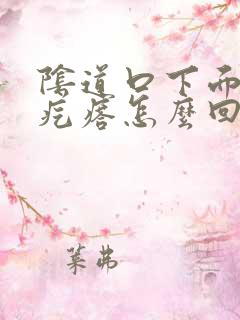 陰道口下面
疙瘩怎麼回
葉弗